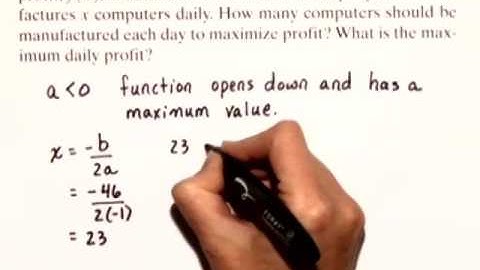 factures x computers daily. How many computers should be
manufactured each day to maximize profit? What is the max-
imum daily profit?
a < 0 function opens down and has a
maximum value.
x = -b/2a
= -46/2(-1)
= 23
23